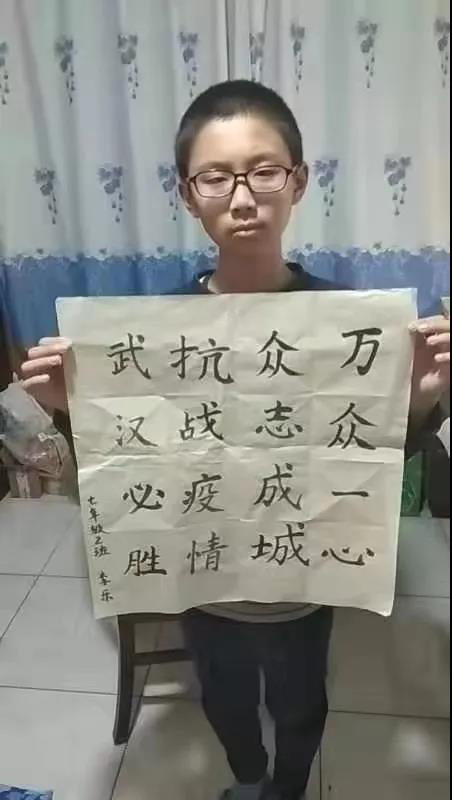 万众一心
众志成城
抗战疫情
武汉必胜
七年级2班 李乐